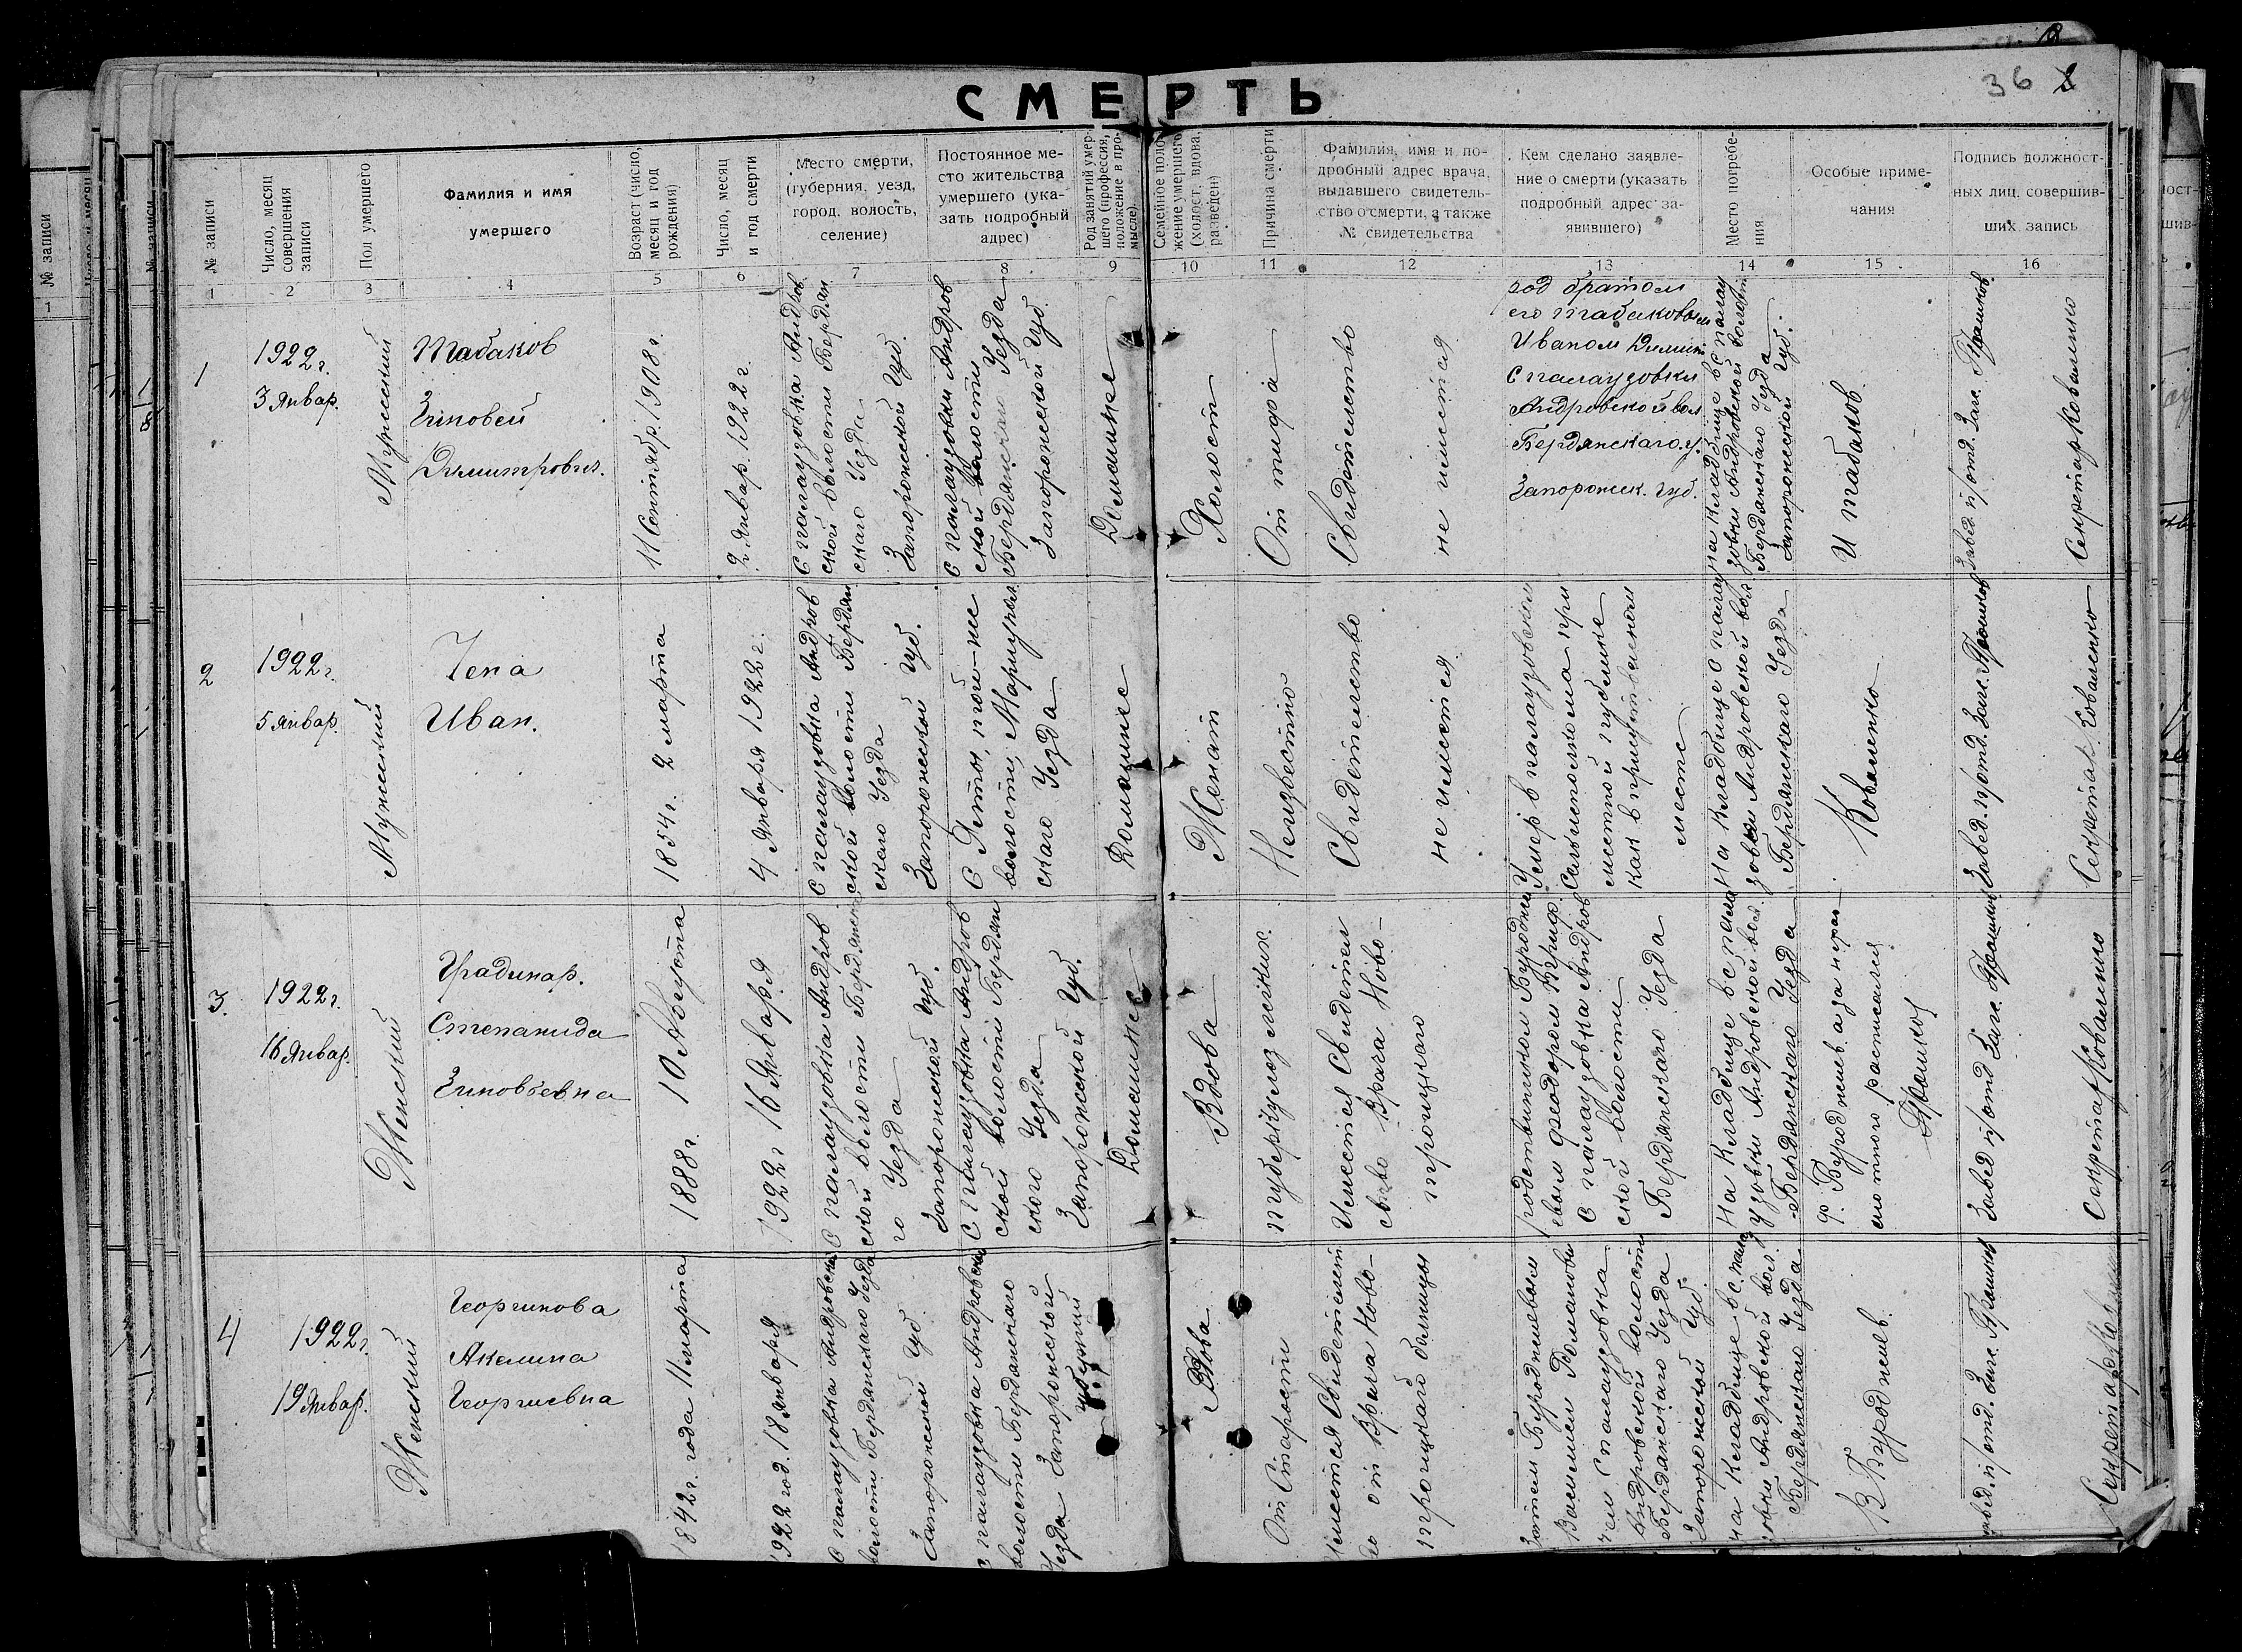 36
СМЕРТЬ
№ записи
Число, месяц
совершения
записи
Пол умершего
Фамилия и имя
умершего
Возраст (число,
месяц и год
рождения)
Число, месяц
и год смерти
Место смерти,
(губерния, уезд,
город, волость,
селение)
Постоянное ме-
сто жительства
умершего (ука-
зать подробный
адрес)
Род занятий умер-
шего (профессия,
положение в про-
мысле).
Семейное поло-
жение умершего
(холост, вдова,
разведен)
Причина смерти
Фамилия, имя и по-
дробный адрес врача,
выдавшего свидетель-
ство о смерти, а также
№ свидетельства
Кем сделано заявле-
ние о смерти (указать
подробный адрес за-
явившего)
Место погребе-
ния
Особые приме-
чания
Подпись должност-
ных лиц, совершив-
ших запись
1 2 3 4 5 6 7 8 9 10 11 12 13 14 15 16
1
1922 г.
3 Январ.
Мужеский
Табаков
Зиновей
Димитрович.
11 Сентябр. 1908 г.
2 Январ. 1922 г.
С Палаузовка Андров
ской волости Бердян
скаго Уезда
Запорожской Губ.
С Палаузовки Андров
ской волости
Бердянскаго Уезда
Запорожской Губ.
Домашнее
Холост
От тифа
Свидетельство
не имется
род братом
его Табаковым
Иваном Димит
С Палаузовки
Андровской вол
Бердянскаго. у.
Запорожск. Губ.
на Кладбище в С Палау
зовки Андровской волост
Бердянскаго Уезда
Запорожской Губ.
И Табаков
Завед. п/отд. Загс.
Секретар Коваленко
2
1922 г.
5 Январ.
Мужеский
Чепа
Иван.
1854 г. 2 марта
4 Января 1922 г.
С Палаузовка Андров
ской волости Бердян
скаго Уезда
Запорожской Губ.
волости, Мариуполь
скаго Уезда
Домашнее
Женат
Неизвестно
Свидетельство
не имется
Умер в Палаузовском
Сельисполкома при
местной публике
как в присутственном
месте
на Кладбище С Палау
зовки Андровской вол
Бердянскаго Уезда
Коваленко
Завед. п/отд. Загс.
Секретар. Коваленко
3.
1922 г.
16 Январ.
Женский
Градинар.
Степанида
Зиновьевна
1888 г. 10 Августа
1922 г 16 Января
С Палаузовка Андров
ской волости Бердянска
го Уезда
Запорожской Губ.
С Палаузовка Андров
ской волости Бердян
ского Уезда
Запорожской Губ.
Домашнее
Вдова
туберкулоз легких.
Имеется Свидетел
ство Врача Ново-
троицкаго
родственником Буроджи
евым Феодором
С Палаузовка Андров
ской волости
Бердянскаго Уезда
На Кладбище в с Пала
узовки Андровской вол.
Бердянскаго Уезда
Ф. Буроджиев а за негра-
мотного расписался
Завед п/отд Загс.
Секретар Коваленко
4
1922 г.
19 Январ.
Женский
Георгинова
Акелина
Георгиевна
1842 г. года 11 марта
1922 год. 18 января
С Палаузовка Андровской
волости Бердянскаго Уезда
Запорожской Губ
С Палаузовка Андровской
волости Бердянскаго
Уезда Запорожской
губернии
Вдова
От Старости
Имеется Свидетельст
во от Врача Ново-
троицкаго болницы
Зятем Буроджиевым
Василием Романови
чем С Палаузовка
Андровской волости
Бердянскаго Уезда
Запорожской Губ.
на Кладбище в с. Палау
зовки Андровской вол.
Бердянскаго Уезда
В Буроджиев.
Завед. п/отд. Загс.
Секретар Коваленко